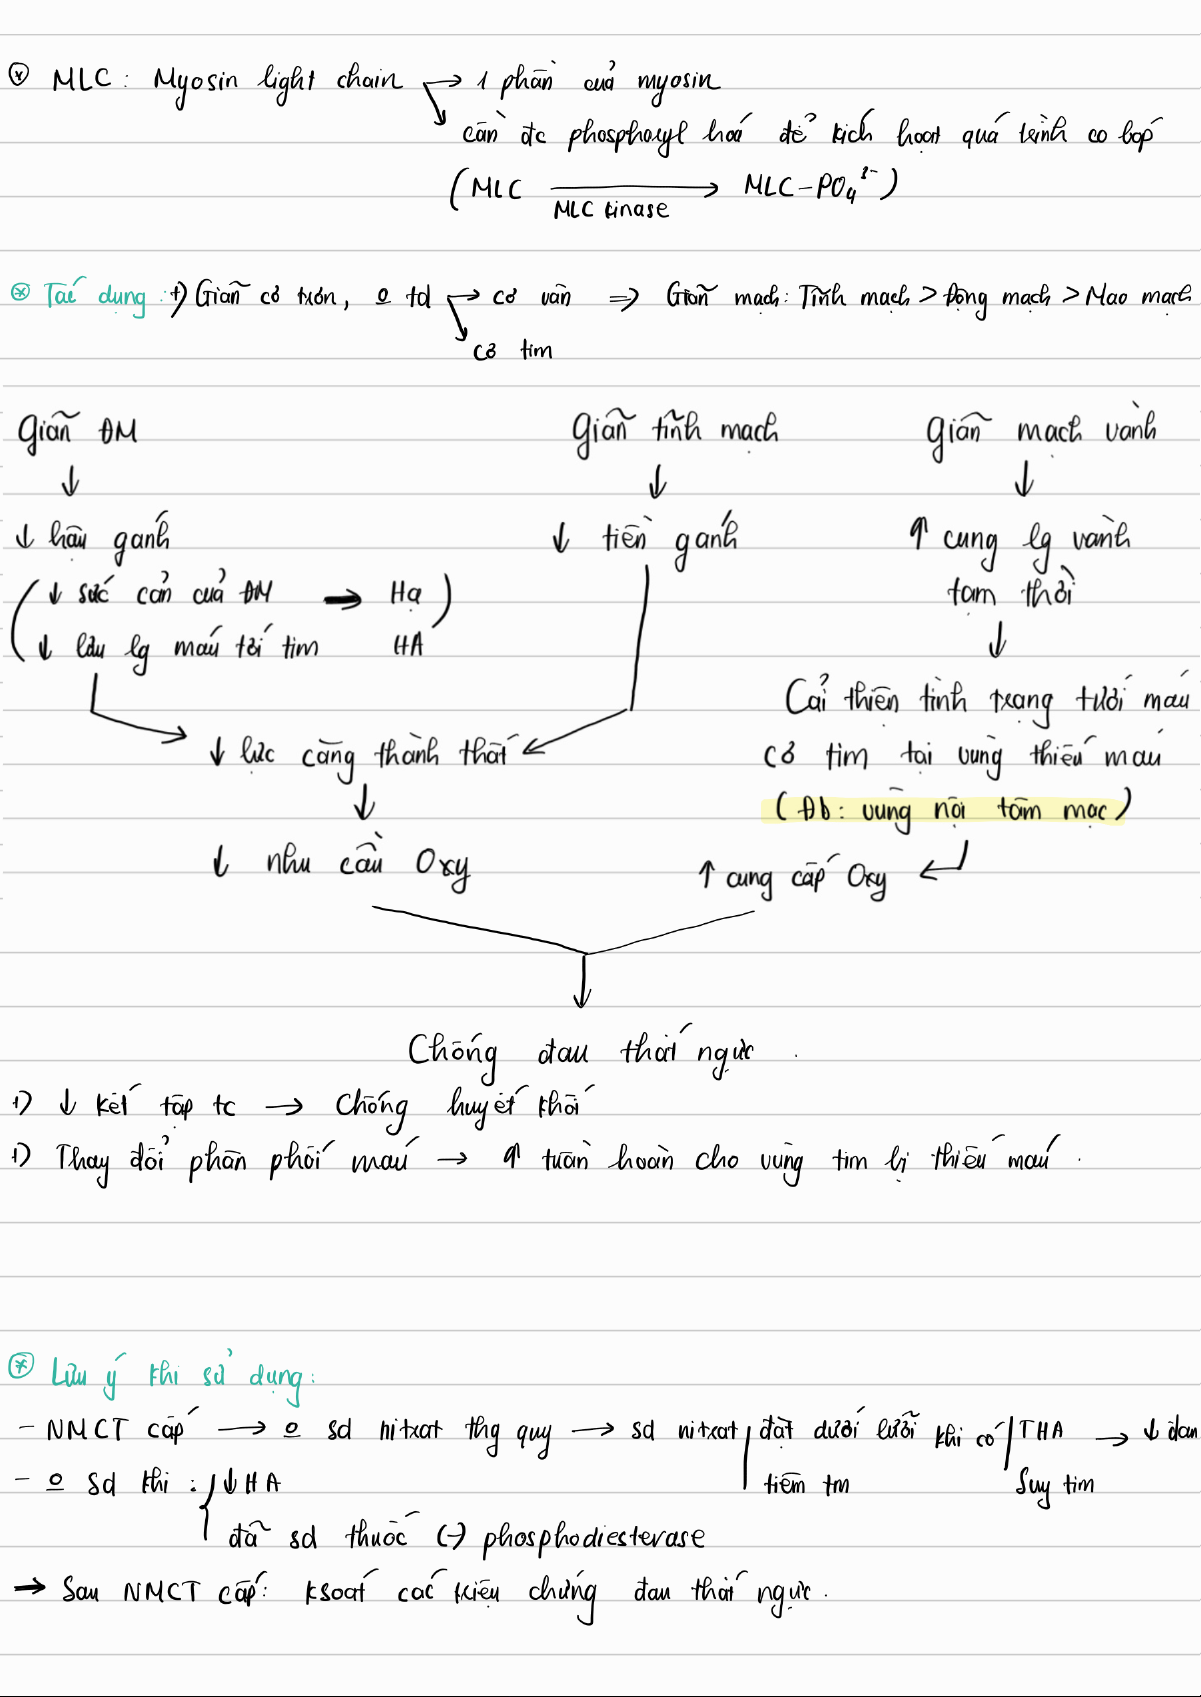 ⊛ MLC : Myosin light chain → 1 phần của myosin
↘ cần đc phosphoryl hoá để kích hoạt quá trình co bóp
(MLC → MLC-PO₄²⁻)
MLC kinase
⊛ Tác dụng : +) Giãn cơ trơn, o td → cơ vân => Giãn mạch: Tĩnh mạch > Động mạch > Mao mạch
↘ cơ tim
Giãn ĐM
Giãn tĩnh mạch
Giãn mạch vành
↓ ↓ ↓
↓ hậu gánh
↓ tiền gánh
↑ cung lg vành
(↓ sức cản của ĐM → Hạ)
tạm thời
↓ lưu lg máu tới tim HA
↓
Cải thiện tình trạng tưới máu
↓ lực căng thành thất
cơ tim tại vùng thiếu máu
↓
(Đb: vùng nội tâm mạc)
↓ nhu cầu Oxy
↑ cung cấp Oxy ←
↓
Chống đau thắt ngực.
+) ↓ kết tập tc → Chống huyết khối
+) Thay đổi phân phối máu → ↑ tuần hoàn cho vùng tim bị thiếu máu.
⊛ Lưu ý khi sử dụng:
- NMCT cấp → o sd nitrat thg quy → sd nitrat | đặt dưới lưỡi khi có | THA → ↓ đau
tiêm tm
Suy tim
- o sd khi : { ↓HA
đã sd thuốc (-) phosphodiesterase
→ Sau NMCT cấp: ksoát các triệu chứng đau thắt ngực.